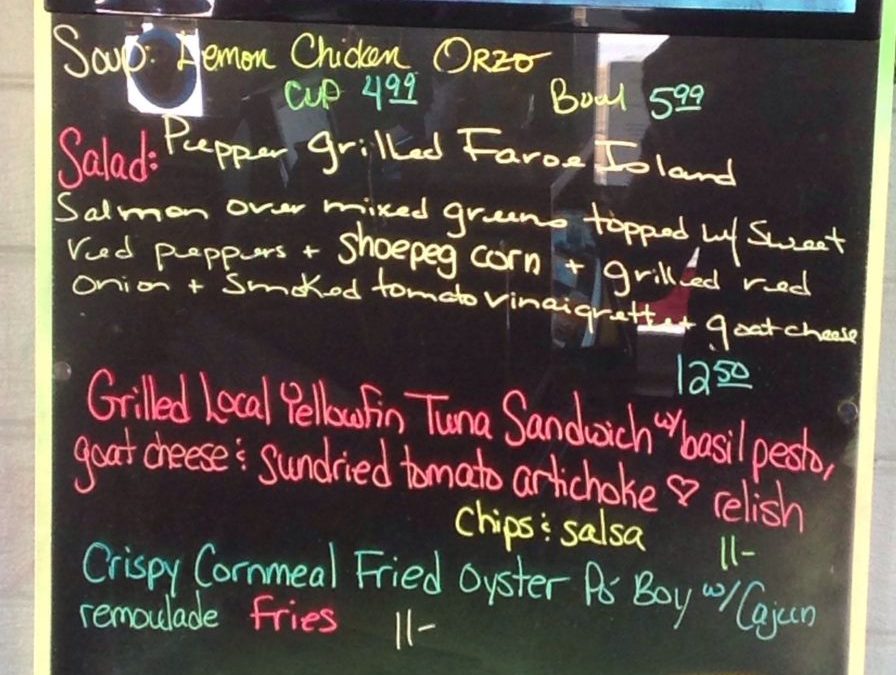 Soup: Lemon Chicken Orzo
Cup 4.99 Bowl 5.99
Salad: Pepper grilled Faroe Island
Salmon over mixed greens topped w/ Sweet
red peppers + shoepeg corn + grilled red
onion + smoked tomato vinaigrette + goat cheese
12.50
Grilled Local Yellowfin Tuna Sandwich w/ basil pesto,
goat cheese & sundried tomato artichoke ♡ relish
Chips & salsa 11-
Crispy Cornmeal Fried Oyster Po' Boy w/ Cajun
remoulade fries 11-